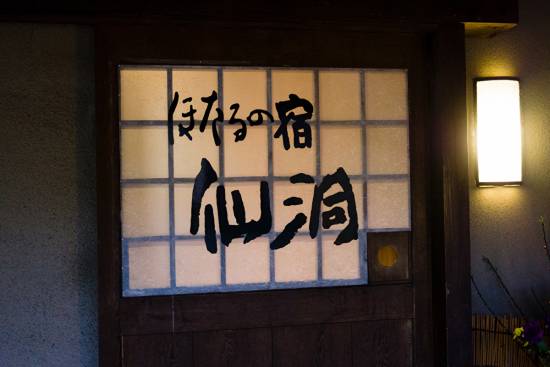 ほたるの宿
仙洞